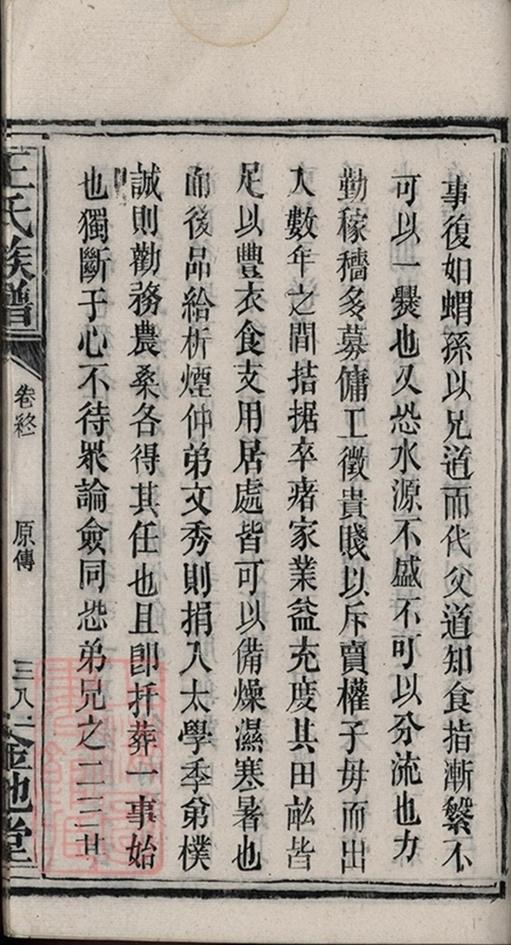 事復如蝟孫以兄道而代父道知食指漸繁不
可以一爨也又恐水源不盛不可以分流也力
勤稼穡多募傭工徵貴賤以斥賣權子母而出
入數年之間拮据卒瘏家業益充度其田畝皆
足以豐衣食支用居處皆可以備燥濕寒暑也
而後品給析煙仲弟文秀則捐入太學季弟樸
誠則勸務農桑各得其任也且卽扦葬一事始
也獨斷于心不待眾論僉同恐弟兄之二三其
王氏族譜
卷終
原傳
三八
金池堂